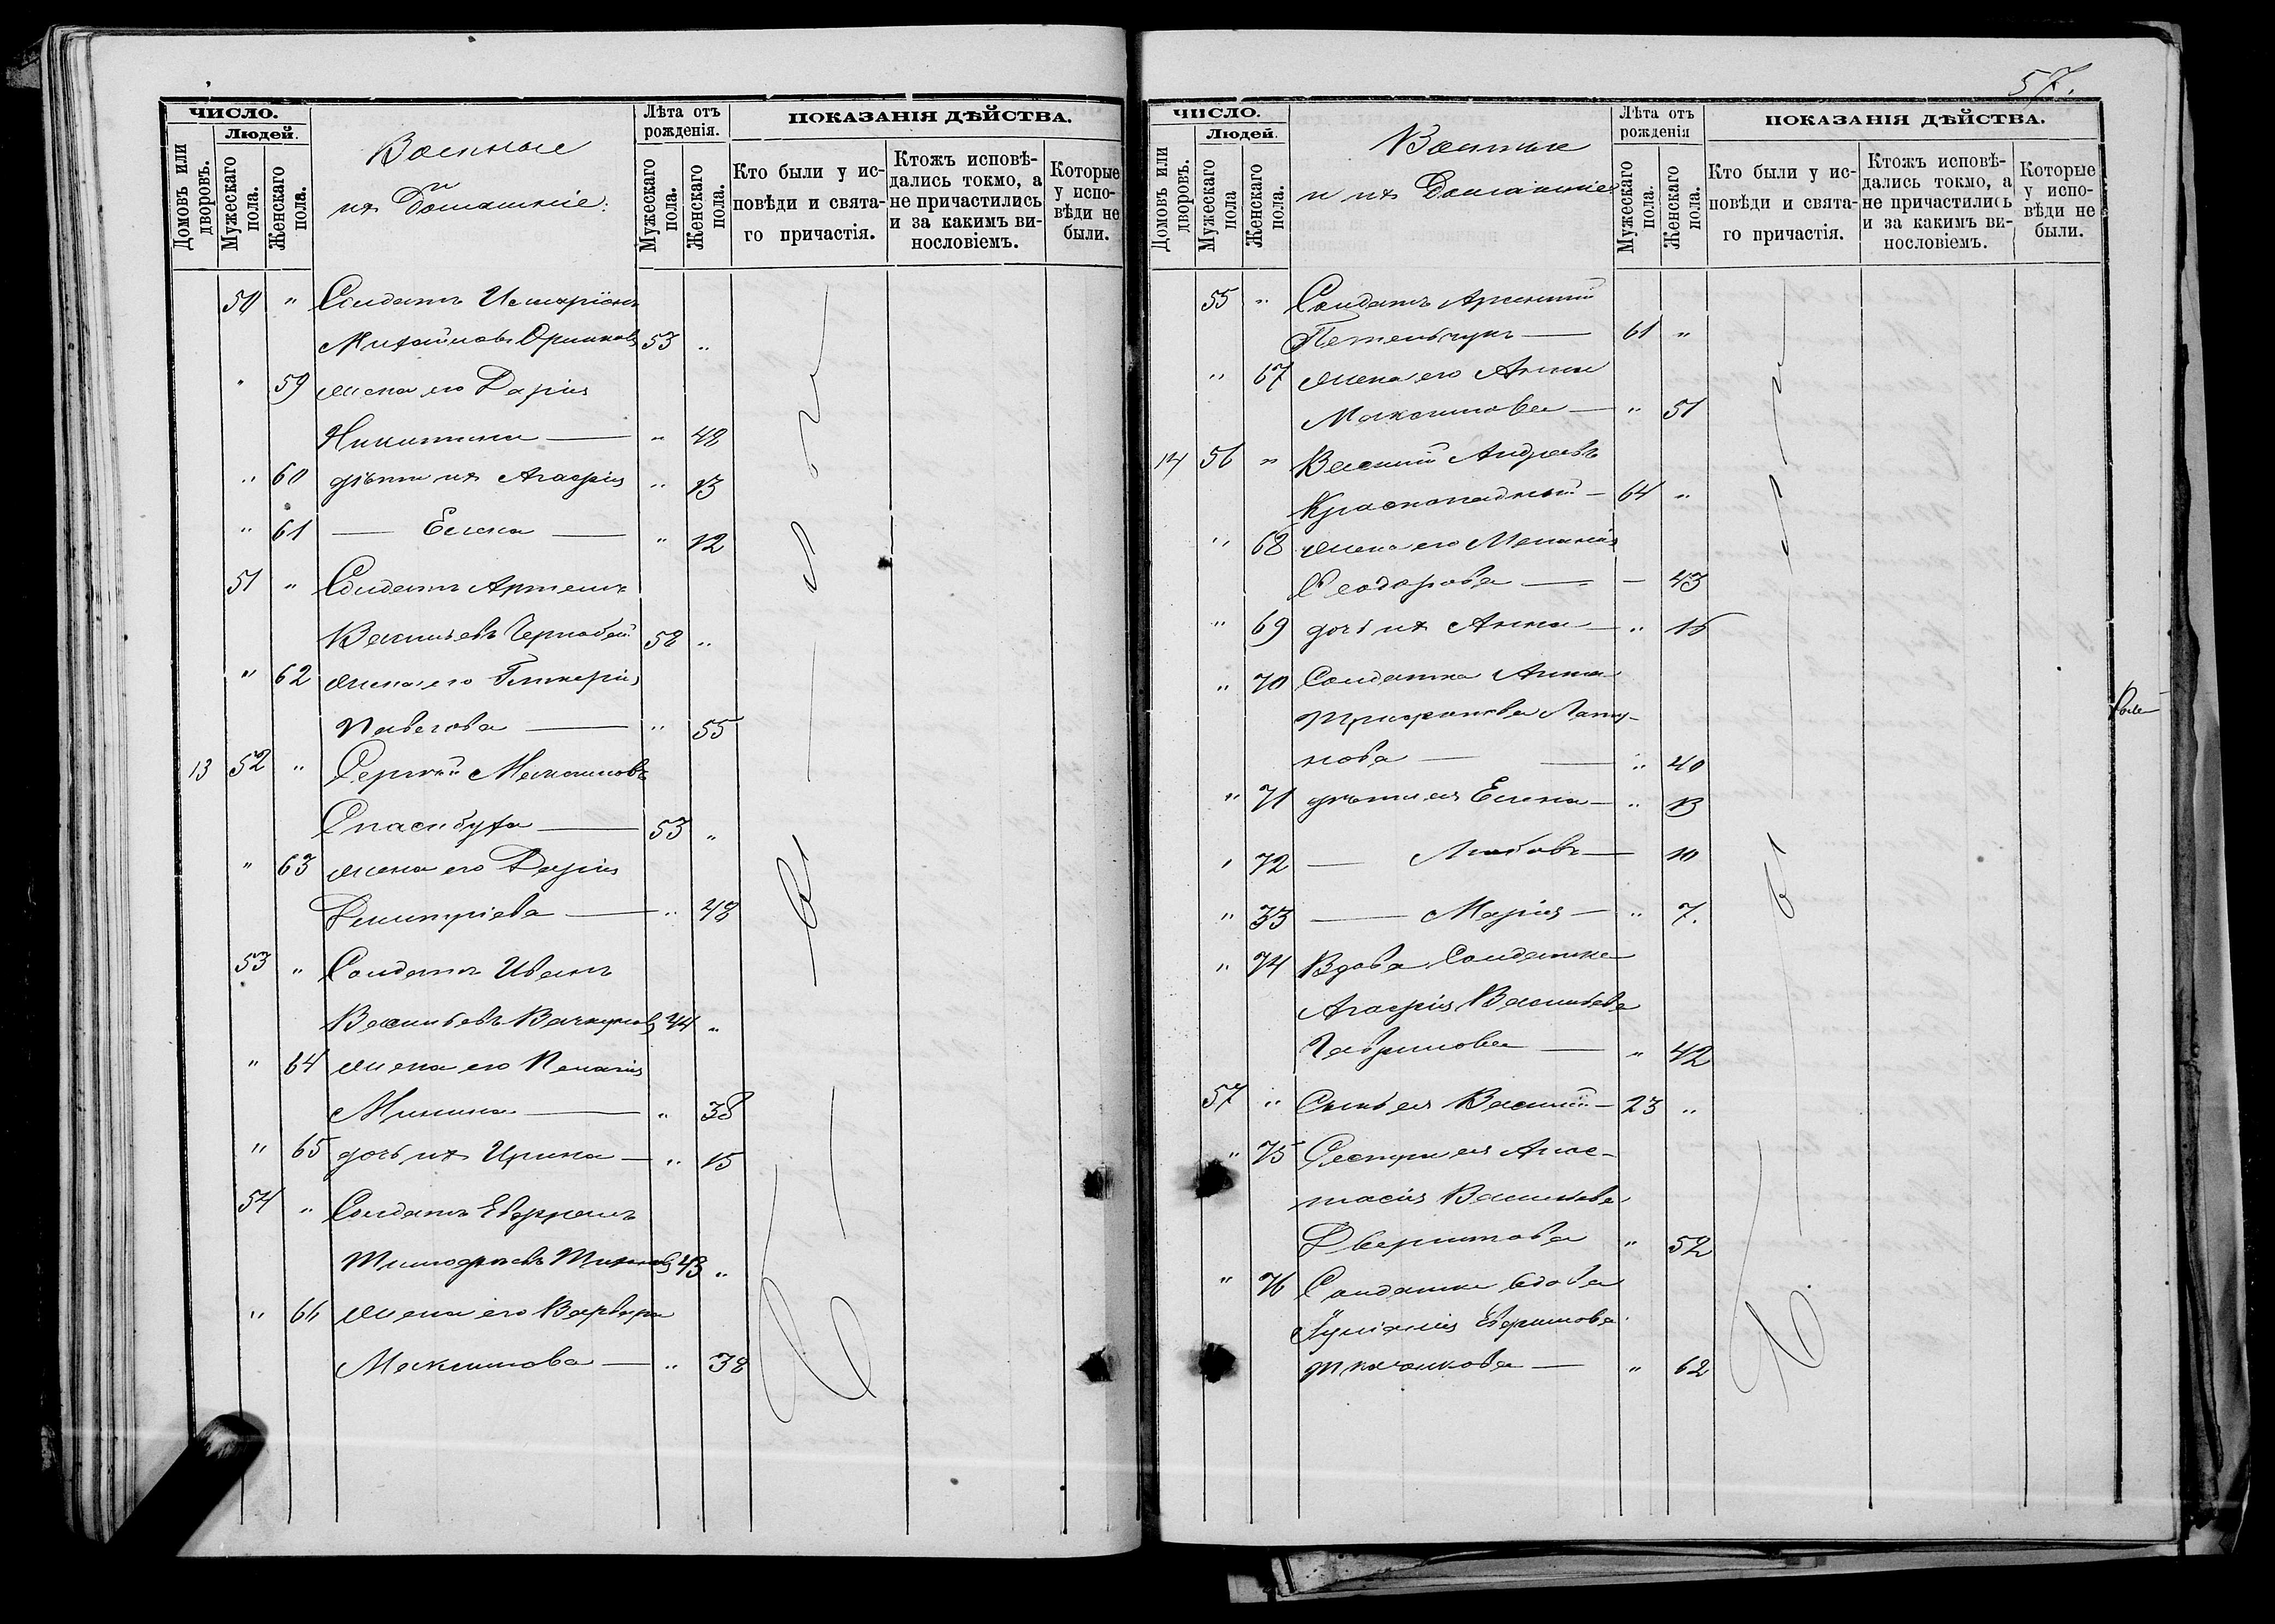 ЧИСЛО.
Людей.
Домовъ или дворовъ.
Мужескаго пола.
Женскаго пола.
Военные
и ихъ Домашніе:
Лѣта отъ рожденія.
Мужескаго пола.
Женскаго пола.
ПОКАЗАНІЯ ДѢЙСТВА.
Кто были у исповѣди и святаго причастія.
Ктожъ исповѣдались токмо, а не причастились и за какимъ винословіемъ.
Которые у исповѣди не были.
50 " Солдатъ Иларіонъ
Михайловъ 53 "
" 59 жена его Дарія
Никитина — " 48
" 60 дѣти ихъ Агафія " 13
" 61 — Елена — " 12
51 " Солдатъ Артемъ
Васильевъ Чернобай 58 "
" 62 жена его Гликерія
Павлова — " 55
13 52 " Сергѣй Максимовъ
Спасибуха — 53 "
" 63 жена его Дарія
Димитріева — " 48
53 " Солдатъ Иванъ
Васильевъ 44 "
" 64 жена его Пелагія
Минина — " 38
" 65 дочь ихъ Ирина — " 15
54 " Солдатъ
Тимофѣевъ 43 "
" 66 жена его Варвара
Максимова — " 38
57.
ЧИСЛО.
Людей.
Домовъ или дворовъ.
Мужескаго пола
Женскаго пола.
Военные
и ихъ Домашніе
Лѣта отъ рожденія
Мужескаго пола.
Женскаго пола.
ПОКАЗАНІЯ ДѢЙСТВА.
Кто были у исповѣди и святаго причастія.
Ктожъ исповѣдались токмо, а не причастились и за какимъ винословіемъ.
Которые у исповѣди не были.
55 " Солдатъ Арсеній
— 61 "
" 67 жена его Анна
Максимова — " 51
14 56 " Василій Андреевъ
— 64 "
" 68 жена его Меланія
Ѳеодорова — — 43
" 69 дочь ихъ Анна — " 16
" 70 Солдатка Анна
Трифонова Лату-
нова — " 40
" 71 дѣти ея Елена — " 13
" 72 — Любовь — 10
" 33 — Марія — " 7.
" 74 Вдова Солдатка
Агафія Васильева
Гаврилова — " 42
57 " Сынъ ея Василій — 23 "
" 75 Сестра ея Анас-
тасія Васильева
" 52
" 76 Солдатка вдова
Іуліанія Ефимова
— " 62